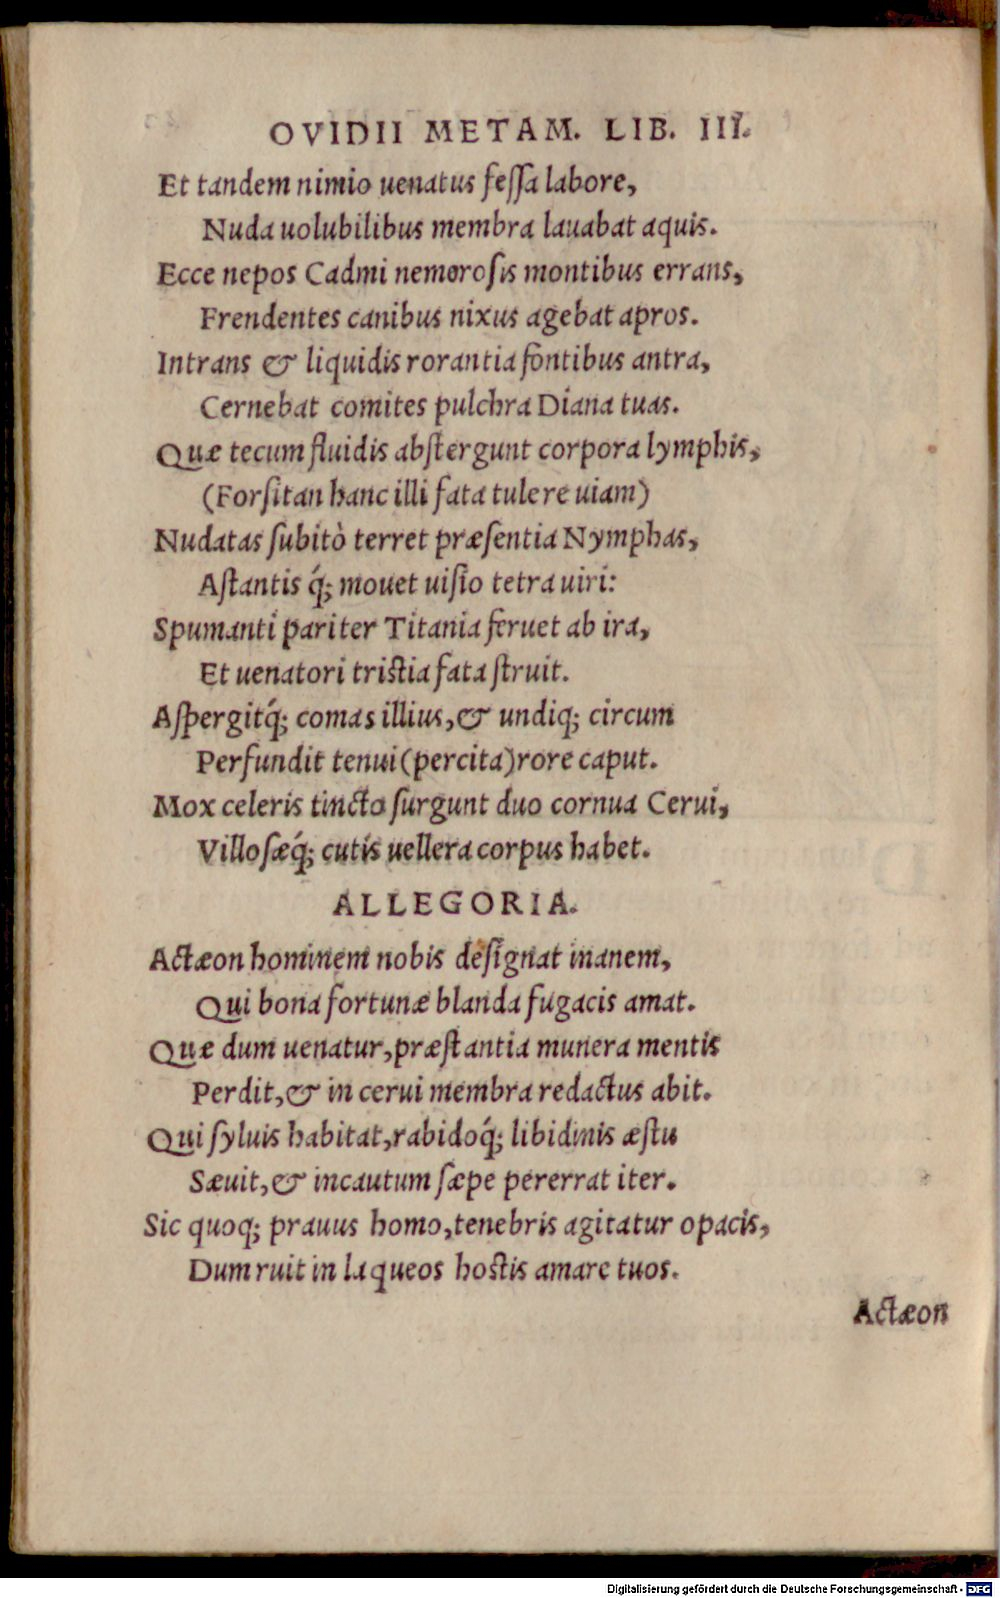 OVIDII METAM. LIB. III.
Et tandem nimio uenatus feſſa labore,
Nuda uolubilibus membra lauabat aquis.
Ecce nepos Cadmi nemoroſis montibus errans,
Frendentes canibus nixus agebat apros.
Intrans & liquidis rorantia fontibus antra,
Cernebat comites pulchra Diana tuas.
Quæ tecum fluidis abſtergunt corpora lymphis,
(Forſitan hanc illi fata tulere uiam)
Nudatas ſubitò terret præſentia Nymphas,
Aſtantis q́; mouet uiſio tetra uiri:
Spumanti pariter Titania feruet ab ira,
Et uenatori triſtia fata ſtruit.
Aſpergitq́; comas illius, & undiq; circum
Perfundit tenui (percita) rore caput.
Mox celeris tincto ſurgunt duo cornua Cerui,
Villoſæq́; cutis uellera corpus habet.
ALLEGORIA.
Actæon hominem nobis deſignat inanem,
Qui bona fortunæ blanda fugacis amat.
Quæ dum uenatur, præſtantia munera mentis
Perdit, & in cerui membra redactus abit.
Qui ſyluis habitat, rabidoq́; libidinis æſtu
Sæuit, & incautum ſæpe pererrat iter.
Sic quoq; prauus homo, tenebris agitatur opacis,
Dum ruit in laqueos hoſtis amare tuos.
Actæon
Digitalisierung gefördert durch die Deutsche Forschungsgemeinschaft - DFG